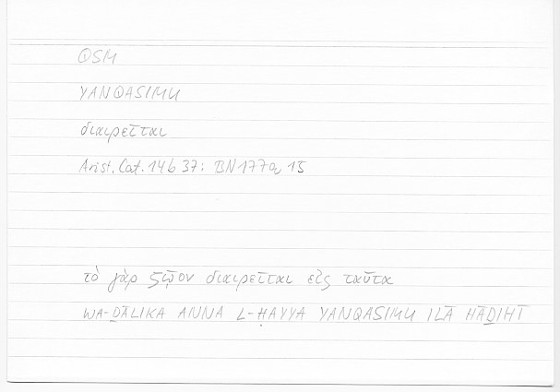 QSM
YANQASIMU
διαιρεῖται
Arist. Cat. 14b 37: BN 177a 15
τὸ γὰρ ζῷον διαιρεῖται εἰς ταῦτα
WA-ḎĀLIKA ANNA L-ḤAYYA YANQASIMU ILĀ HĀḎIHI